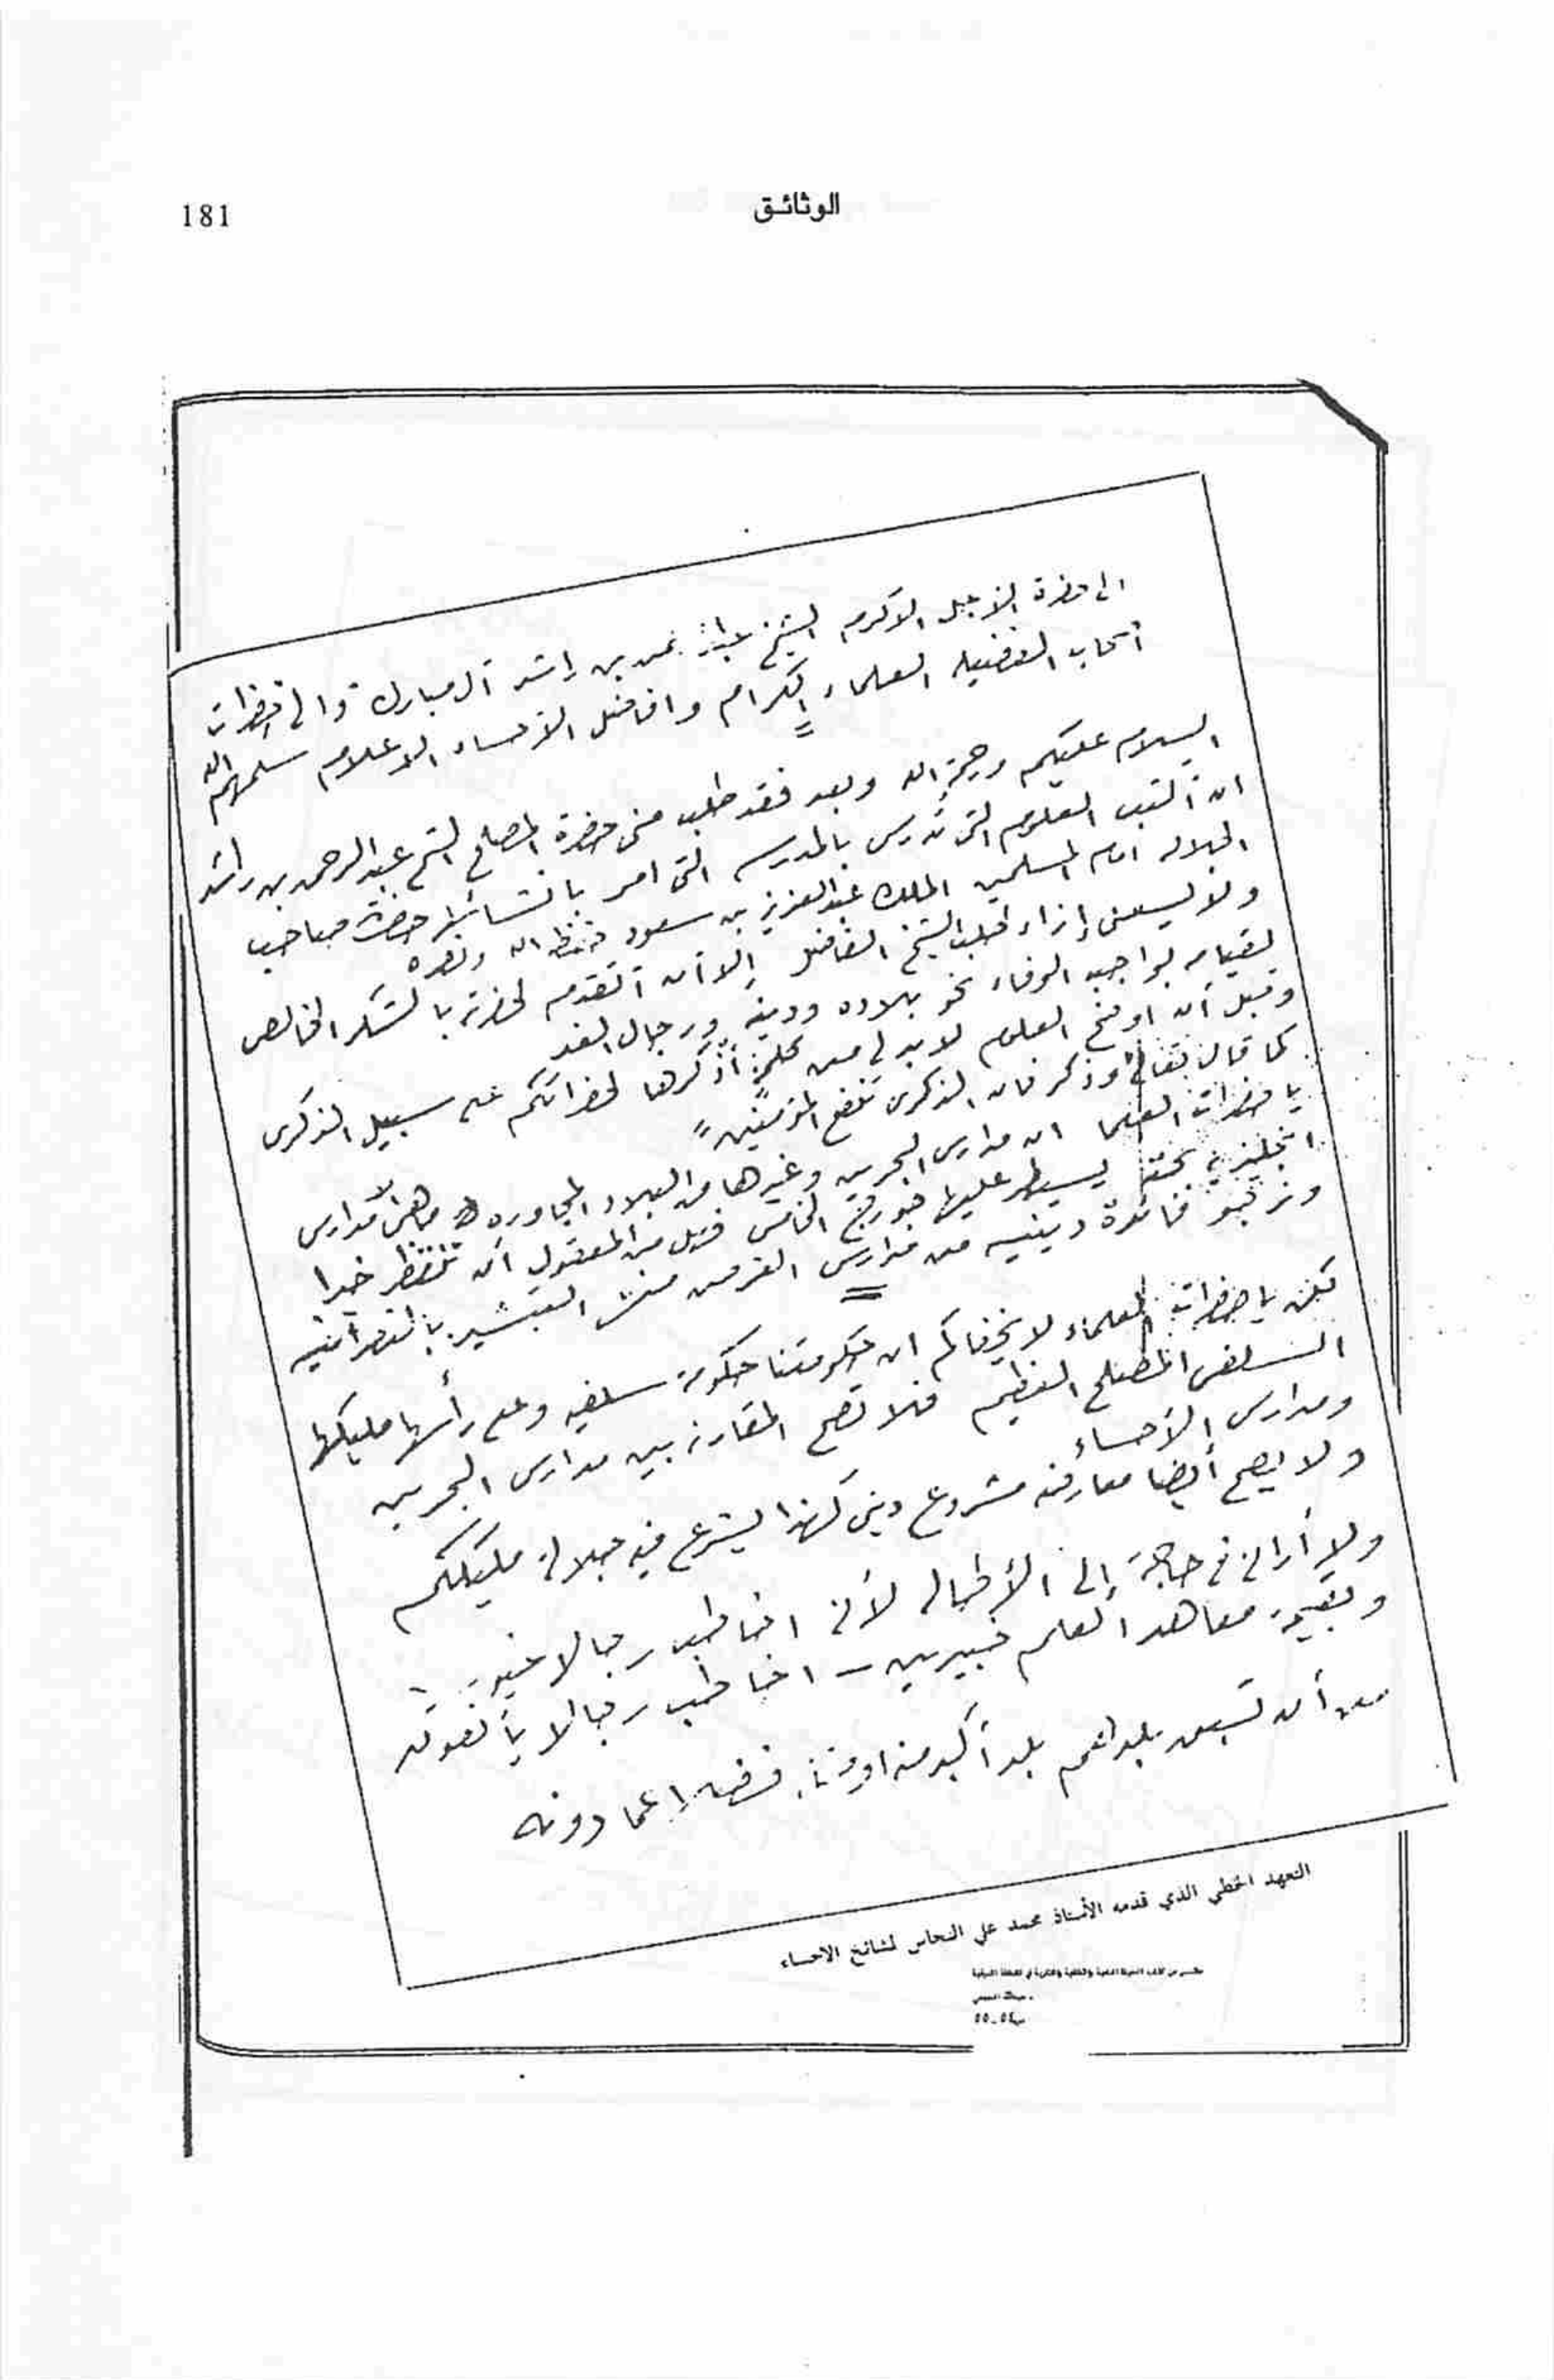 الوثائق
181
الى حضرة الأجل الاكرم الشيخ عبدالرحمن بن راشد آل مبارك والى حضرات
أصحاب الفضيله العلماء الكرام وافاضل الأحساء الاعلام سلمهم الله
السلام عليكم ورحمة الله وبعد فقد طلب منى حضرة المصلح الشيخ عبدالرحمن بن راشد
ان أكتب العلوم التى تدرس بالمدرسه التى امر بانشائها حضرة صاحب
الجلاله امام المسلمين الملك عبدالعزيز بن سعود حفظه الله ونصره
ولا يسعنى إزاء طلب الشيخ الفاضل إلا أن أتقدم لحضرته بالشكر الخالص
لقيامه بواجب الوفاء نحو بلاده ودينه ورجال الغد
وقبل أن اوضح العلوم لابد لى من كلمة أذكرها لحضراتكم على سبيل الذكرى
كما قال تعالى وذكر فان الذكرى تنفع المؤمنين "
يا حضرات العلما ان مدارس البحرين وغيرها من البلاد المجاوره ما هى الا مدارس
انجليزية بحته يسيطر عليها جورج الخامس فهل من المعقول أن ننتظر خيرا
ونرجو فائدة دينيه من مدارس الغرض منها التبشير بالنصرانيه
لكن يا حضرات العلماء لا يخفاكم ان حكومتنا حكومة سلفيه وعلى رأسها مليكها
السلفى المصلح العظيم فلا تصح المقارنة بين مدارس البحرين
ومدارس الأحساء
ولا يصح أيضا معارضة مشروع دينى كهذا يشرع فيه جلالة مليككم
ولا أرانى فى حاجة إلى الأطاله لأنى اخاطب رجالا
وبقيمة معاهد العلم خبيرين – اخاطب رجالا يأنفون
من أن تسبق بلدهم بلد أكبر منها
التعهد الخطي الذي قدمه الأستاذ محمد علي النحاس لمشائخ الاحساء
ص٥٤-٥٥